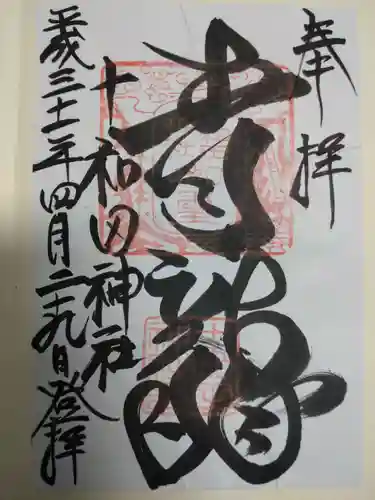 奉拝
青龍
十和田神社
平成三十一年四月二十九日登拝